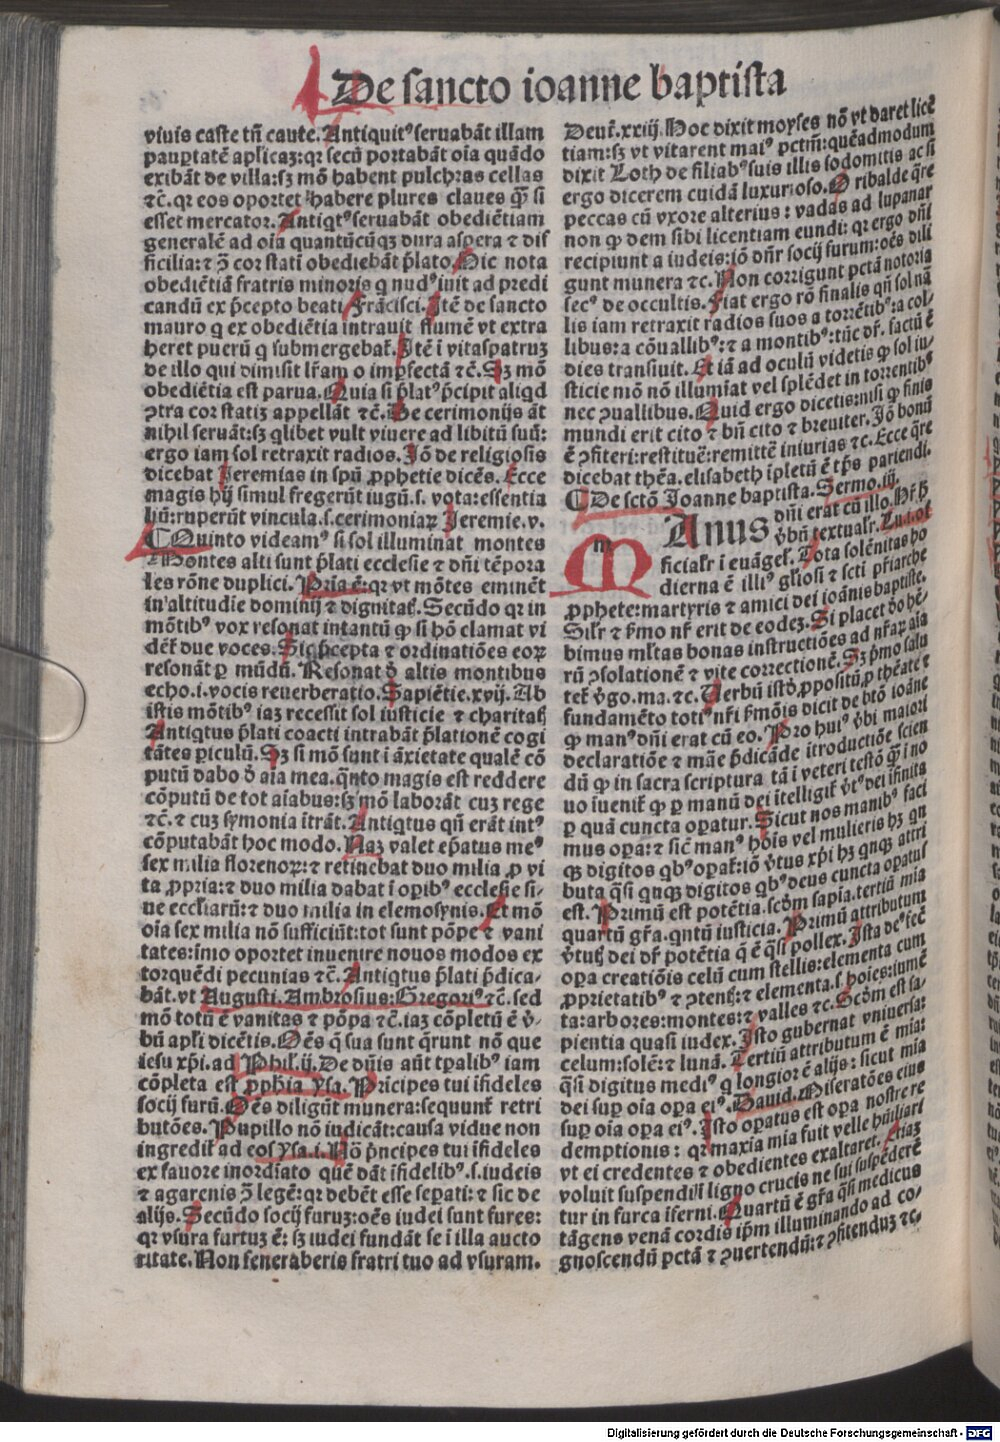 De sancto ioanne baptista
viuis caste tñ caute. Antiquitꝰ seruabãt illam
paup̱tatẽ apl̃icaꝫ: qꝛ secũ portabãt oĩa quãdo
exibãt de villa: sꝫ mõ habent pulchras cellas
⁊c̃. qꝛ eos oportet habere plures claues q̃ꝫ si
esset mercator. Antiqtꝰ seruabãt obediẽtiam
generalẽ ad oĩa quantũcũqꝫ dura aspera ⁊ dif
ficilia: ⁊ ꝯ̃ cor stati obediebãt p̃lato. Hic nota
obediẽtiã fratris minoris q nudꝰ iuit ad predi
candũ ex p̃cepto beati Frãcisci. Itẽ de sancto
mauro q ex obediẽtia intrauit flumẽ vt extra
heret puerũ q submergebat̃. Itẽ i vitaspatruꝫ
de illo qui dimisit lr̃am o imp̱fectã ⁊c̃. Sꝫ mõ
obediẽtia est parua. Quia si p̃latꝰ p̃cipit aliqd
ꝯtra cor statiꝫ appellãt ⁊c̃. De cerimonijs ãt
nihil seruãt: sꝫ qlibet vult viuere ad libitũ suũ:
ergo iam sol retraxit radios. Iõ de religiosis
dicebat Jeremias in spũ ꝓphetie dicẽs. Ecce
magis hij simul fregerũt iugũ .s. vota: essentia
liũ: ruperũt vincula .s. cerimoniaꝝ Jeremie. v.
Quinto videamꝰ si sol illuminat montes
Montes alti sunt p̃lati ecclesie ⁊ dñi tẽpora
les rõne duplici. Pria ẽ: qꝛ vt mõtes eminẽt
in altitudie dominij ⁊ dignitat̃. Secũdo qꝛ in
mõtibꝰ vox resonat intantũ ꝙ si hõ clamat vi
dẽt̃ due voces. Sic p̃cepta ⁊ ordinatiões eoꝝ
resonãt ꝑ mũdũ. Resonat ď altis montibus
echo .i. vocis reuerberatio. Sapiẽtie. xvij. Ab
istis mõtibꝰ iaꝫ recessit sol iusticie ⁊ charitat̃
Antiqtus p̃lati coacti intrabãt p̃lationẽ cogi
tãtes ꝑiculũ. Sꝫ si mõ sunt i ãxietate qualẽ cõ
putũ dabo ď aĩa mea. q̃nto magis est reddere
cõputũ de tot aĩabus: sꝫ mõ laborãt cuꝫ rege
⁊c̃. ⁊ cuꝫ symonia ĩtrãt. Antiqtus qñ erãt intꝰ
cõputabãt hoc modo. Naꝫ valet ep̃atus meꝰ
sex milia florenoꝝ: ⁊ retinebat duo milia ꝓ vi
ta ꝓpria: ⁊ duo milia dabat ĩ oꝑibꝰ ecclesie si-
ue eccl̃iarũ: ⁊ duo milia in elemosynis. Et mõ
oĩa sex milia nõ sufficiũt: tot sunt põpe ⁊ vani
tates: ĩmo oportet inuenire nouos modos ex
torquẽdi pecunias ⁊c̃. Antiqtus p̃lati p̃dica-
bãt. vt Augusti. Ambrosius: Gregoriꝰ ⁊c̃. sed
mõ totũ ẽ vanitas ⁊ põpa ⁊c̃. iaꝫ cõpletũ ẽ v̓-
bũ apl̃i dicẽtis. Oẽs q̃ sua sunt q̃runt nõ que
iesu xp̃i. ad Phil̃. ij. De dñis aũt tꝑalibꝰ iam
cõpleta est ꝓphĩa ysa. Prĩcipes tui ĩfideles
socij furũ. Oẽs diligũt munera: sequunt̃ retri
butões. Pupillo nõ iudicãt: causa vidue non
ingredit̃ ad eos ysa. i. Nõ p̃ncipes tui ifideles
ex fauore inordĩato quẽ dãt ifidelibꝰ .s. iudeis
⁊ agarenis ꝯ̃ legẽ: qꝛ debẽt esse seꝑati: ⁊ sic de
alijs. Secũdo socij furuꝫ: oẽs iudei sunt fures:
qꝛ vsura furtuꝫ ẽ: sꝫ iudei fundãt se i illa aucto
ritate. Non feneraberis fratri tuo ad vsuram.
Deut̃. xxiij. Hoc dixit moyses nõ vt daret licẽ
tiam: sꝫ vt vitarent maiꝰ pctm̃: quẽadmodum
dixit Loth de filiabꝰ suis illis sodomitis ac si
ergo dicerem cuidã luxurioso. O ribalde q̃re
peccas cũ vxore alterius: vadas ad lupanar
non ꝙ dem sibi licentiam eundi: qꝛ ergo dñi
recipiunt a iudeis: iõ dñr socij furum: oẽs dili
gunt munera ⁊c. Non corrigunt pctã notoria
secꝰ de occultis. Fiat ergo rõ finalis qñ sol nã
lis iam retraxit radios suos a torrẽtibꝰ: a col
libus: a cõuallibꝰ: ⁊ a montibꝰ: tũc dr̃. factũ ẽ
dies transiuit. Et iã ad oculũ videtis ꝙ sol iu-
sticie mõ nõ illumĩat vel splẽdet in torrentibꝰ
nec ꝯuallibus. Quid ergo dicetis: nisi ꝙ finis
mundi erit cito ⁊ bñ cito ⁊ breuiter. Iõ bonũ
ẽ ꝯfiteri: restituẽ: remittẽ iniurias ⁊c. Ecce q̃re
dicebat thẽa. elisabeth ĩpletũ ẽ tp̃s pariendi.
De sctõ Joanne baptista. Sermo. iij.
MAnus dñi erat cũ illo. Hr̃ h̃
v̓bũ textualr̃. Lu. i. ot
ficialr̃ i euãgel̃. Tota solẽnitas ho
dierna ẽ illiꝰ gl̃iosi ⁊ scti pr̃iarche
ꝓphete: martyris ⁊ amici dei ioãnis baptiste.
Silr̃ ⁊ p̃mo nr̃ erit de eodeꝫ. Si placet dõ hẽ/
bimus ml̃tas bonas instructiões ad nr̃aꝝ aĩa
rũ ꝯsolationẽ ⁊ vite correctionẽ. Sꝫ p̃mo salu
tet̃ v̓go. ma. ⁊c. Verbũ istď ꝓpositũ ꝓ thẽate ⁊
fundamẽto totiꝰ nr̃i p̃mõis dicit de btõ ioãne
ꝙ manꝰ dñi erat cũ eo. Pro huiꝰ v̓bi maiori
declaratiõe ⁊ mãe p̃dicãde ĩtroductiõe scien
dũ ꝙ in sacra scriptura tã i veteri testõ q̃ꝫ i no
uo iuenit̃ ꝙ ꝑ manũ dei ĩtelligit̃ v̓tꝰ dei ĩfinita
ꝑ quã cuncta oꝑatur. Sicut nos manibꝰ faci
mus oꝑa: ⁊ sic̃ manꝰ hoĩs vel mulieris hꝫ qn
qꝫ digitos qbꝰ oꝑat̃: iõ v̓tus xp̃i hꝫ qnqꝫ attri
buta q̃si qnqꝫ digitos qbꝰ deus cuncta oꝑatus
est. Primũ est potẽtia. scďm sapĩa. tertiũ mĩa
quartũ gr̃a. qntũ iusticia. Primũ attributum
v̓tut̃ dei dr̃ potẽtia q̃ ẽ q̃si pollex. Ista deꝰ fec̃
oꝑa creatiõis celũ cum stellis: elementa cum
ꝓprietatibꝰ ⁊ ꝯtent̃: ⁊ elementa .s. hoĩes: iumẽ
ta: arbores: montes: ⁊ valles ⁊c. Scďm est sa-
pientia quasi iudex. Isto gubernat vniuersa:
celum: solẽ: ⁊ lunã. Tertiũ attributum ẽ mĩa:
q̃si digitus mediꝰ q longior ẽ alijs: sicut mĩa
dei suꝑ oĩa oꝑa eiꝰ. Dauid. Miseratões eius
suꝑ oĩa oꝑa eiꝰ. Isto oꝑatus est oꝑa nostre re
demptionis: qꝛ maxĩa mĩa fuit velle hũiliari
vt ei credentes ⁊ obedientes exaltaret. Etiaꝫ
voluit suspendi ĩ ligno crucis ne sui suspẽderẽ
tur in furca ĩferni. Quartũ ẽ gr̃a q̃si medicus
tãgens venã cordis ip̃m illuminando ad co-
gnoscendũ pctã ⁊ ꝯuertendũ: ⁊ ꝯfitenduꝫ ⁊c.
Digitalisierung gefördert durch die Deutsche Forschungsgemeinschaft - DFG